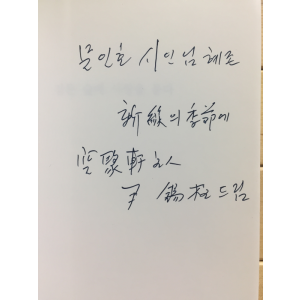 문인호 시인님 혜존
新綠의 季節에
聚軒主人
尹 錫柱 드림